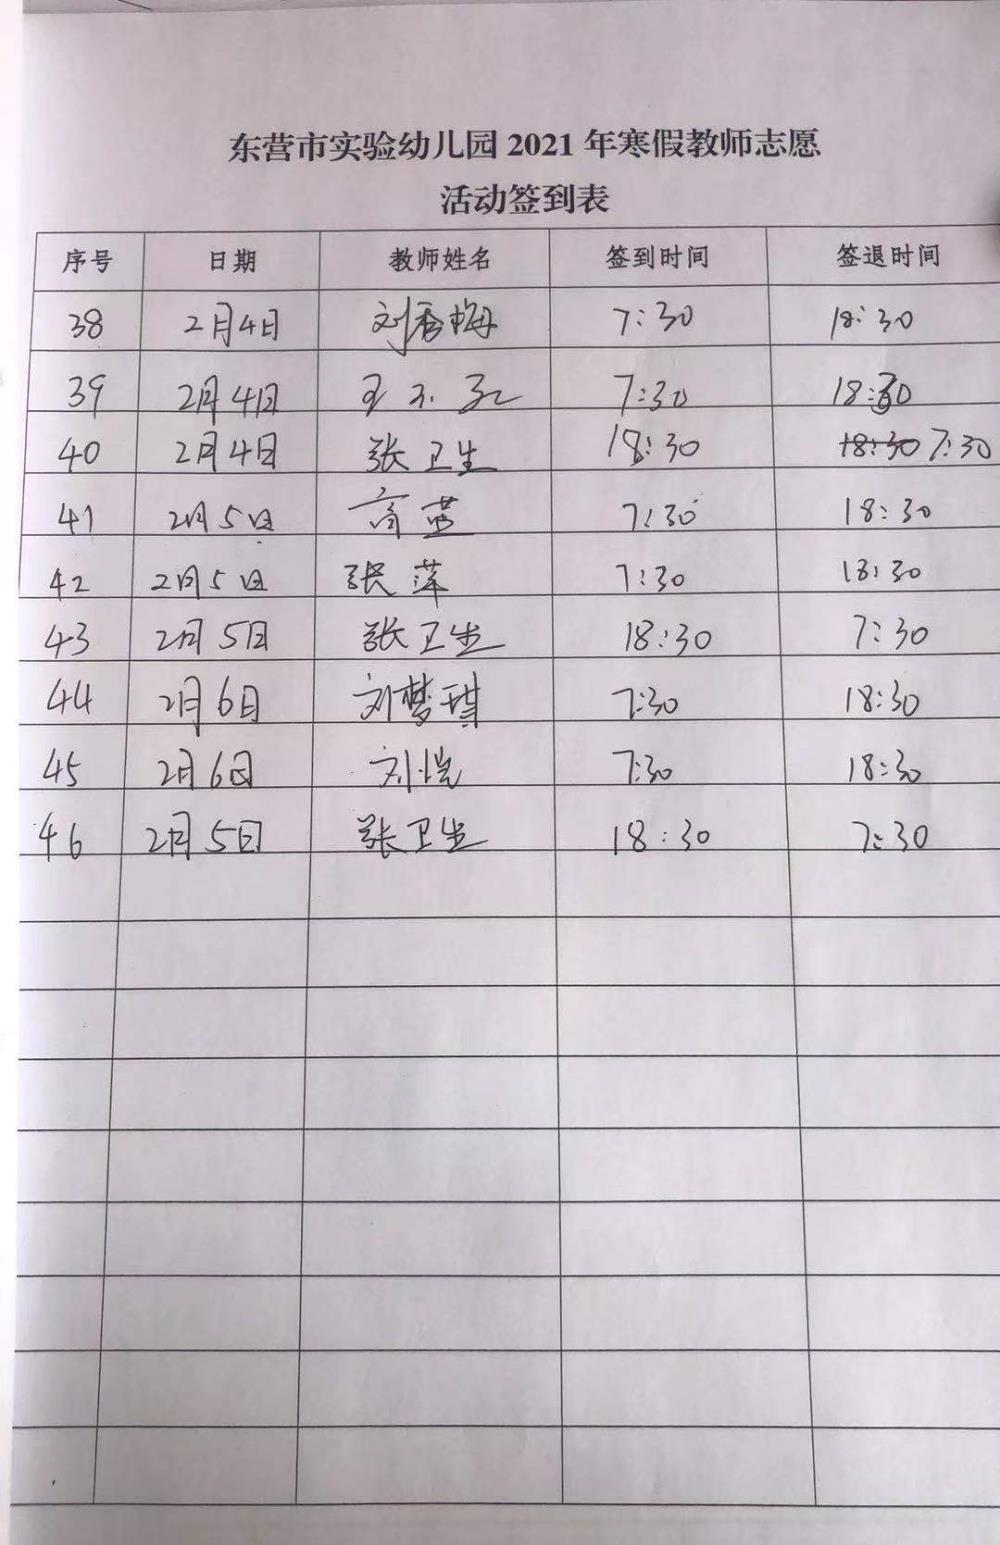 东营市实验幼儿园 2021 年寒假教师志愿
活动签到表
序号 日期 教师姓名 签到时间 签退时间
38 2月4日 刘秀梅 7:30 18:30
39 2月4日 7:30 18:30
40 2月4日 张卫生 18:30 18:30 7:30
41 2月5日 高蓝 7:30 18:30
42 2月5日 张萍 7:30 18:30
43 2月5日 张卫生 18:30 7:30
44 2月6日 刘梦琪 7:30 18:30
45 2月6日 刘恺 7:30 18:30
46 2月5日 张卫生 18:30 7:30